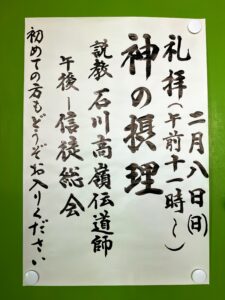 二月八日(日)
礼拝(午前十一時〜)
神の摂理
説教 石川高嶺伝道師
午後ー信徒総会
初めての方もどうぞお入りください